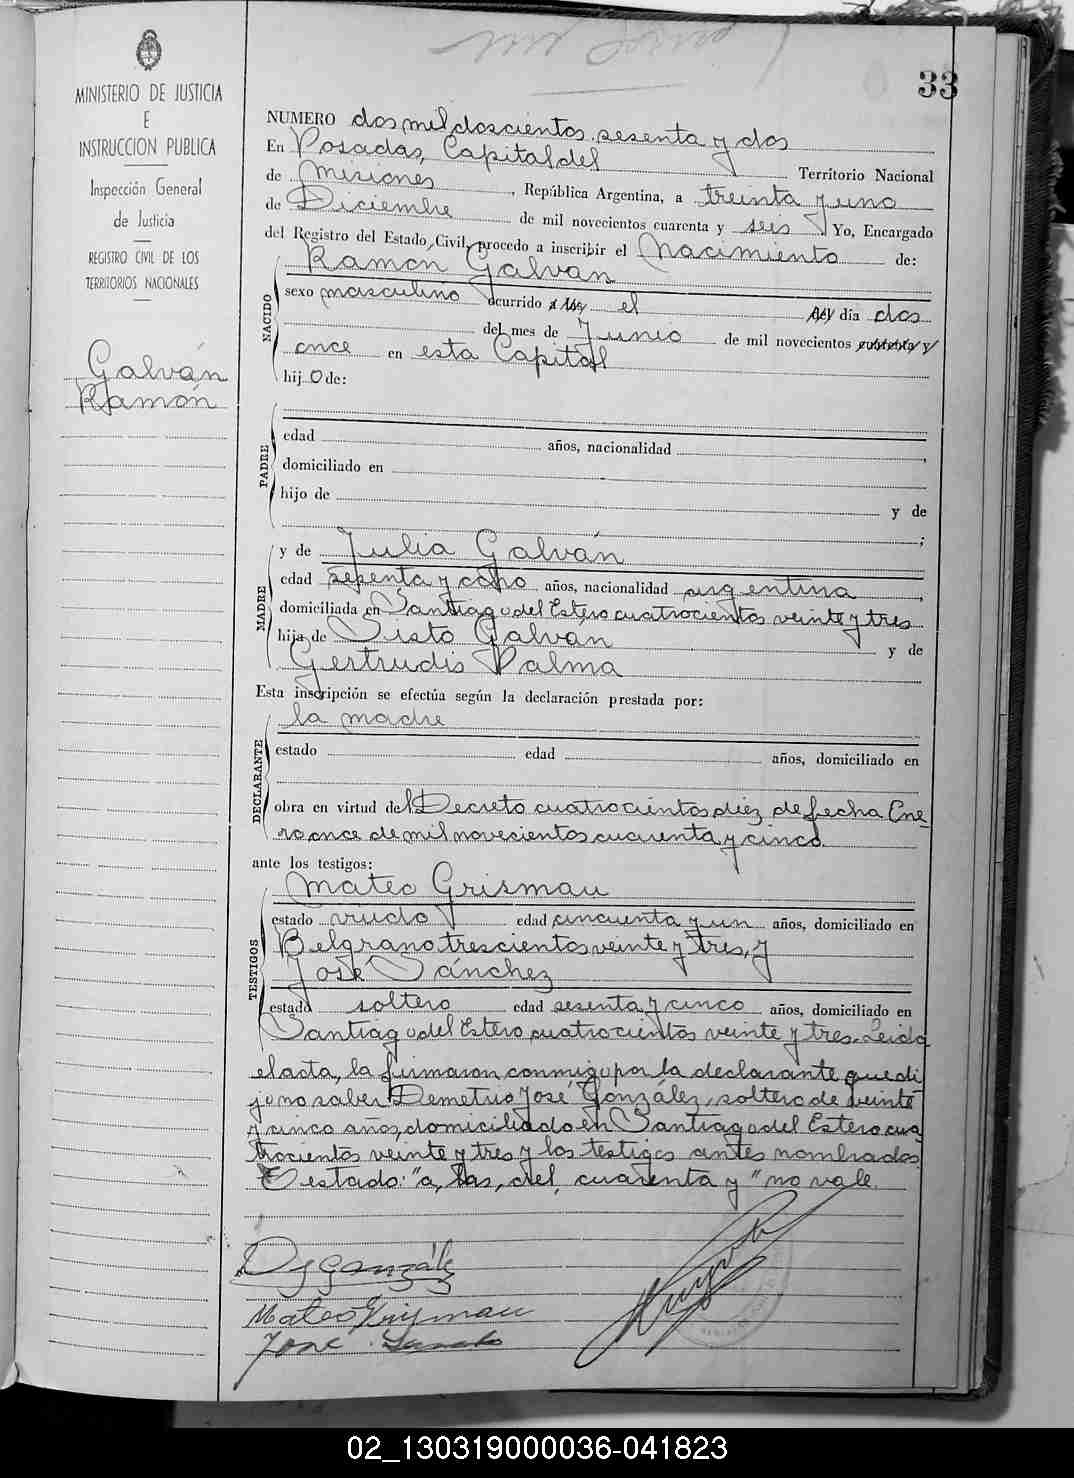 33
MINISTERIO DE JUSTICIA
E
INSTRUCCION PUBLICA
Inspección General
de Justicia
REGISTRO CIVIL DE LOS
TERRITORIOS NACIONALES
Galván
Ramón
NUMERO dos mil doscientos sesenta y dos
En Posadas, Capital del Territorio Nacional
de Misiones, República Argentina, a treinta y uno
de Diciembre de mil novecientos cuarenta y seis Yo, Encargado
del Registro del Estado Civil, procedo a inscribir el Nacimiento de:
NACIDO
Ramon Galván
sexo masculino ocurrido a las el del día dos
del mes de Junio de mil novecientos cuarenta y
once en esta Capital
hijo de:
PADRE
edad años, nacionalidad ,
domiciliado en
hijo de y de
;
MADRE
y de Julia Galván
edad sesenta y ocho años, nacionalidad argentina,
domiciliada en Santiago del Estero cuatrocientos veinte y tres
hija de Sisto Galván y de
Gertrudis Palma
Esta inscripción se efectúa según la declaración prestada por:
DECLARANTE
la madre
estado edad años, domiciliado en
obra en virtud del Decreto cuatrocientos diez de fecha Ene-
ro once de mil novecientos cuarenta y cinco.
ante los testigos:
TESTIGOS
Mateo Grismau
estado viudo edad cincuenta y un años, domiciliado en
Belgrano trescientos veinte y tres, y
José Sánchez
estado soltero edad sesenta y cinco años, domiciliado en
Santiago del Estero cuatrocientos veinte y tres. Leida
el acta, la firmaron conmigo por la declarante que di-
jo no saber Demetrio José González, soltero de veinte
y cinco años, domiciliado en Santiago del Estero cua-
trocientos veinte y tres y los testigos antes nombrados
Testado: "a, las, del, cuarenta y" no vale.
DJGonzález
Mateo Grismau
José Sanches
02_130319000036-041823